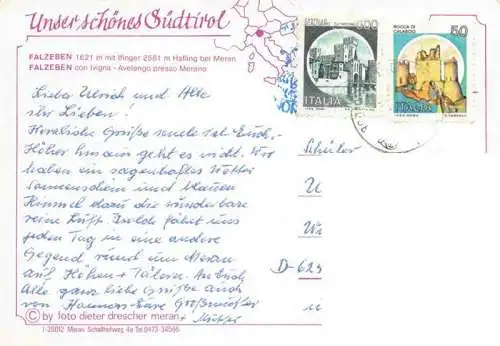 Unser schönes Südtirol
FALZEBEN 1621 m mit Ifinger 2581 m Hafling bei Meran
FALZEBEN con Ivigna - Avelengo presso Merano
600
ITALIA
ROCCA DI
CALASCIO
50
ITALIA
Liebe Ulrich und Alle
ihr Lieben!
Herzliche Grüße sende ich Euch.-
Höher hinaus geht es nicht. Wir
haben ein sagenhaftes Wetter
Sonnenschein und blauen
Himmel dazu die wunderbare
reine Luft. Isolde fährt uns
jeden Tag in eine andere
Gegend rund um Meran
auf Höhen + Täler. An Euch
Alle ganz liebe Grüße auch
von Hannes- Großmutter
+ Mutter
Schüler
D-623
© by foto dieter drescher meran
I-39012 Meran Schaffelweg 4a Tel.0473 34566